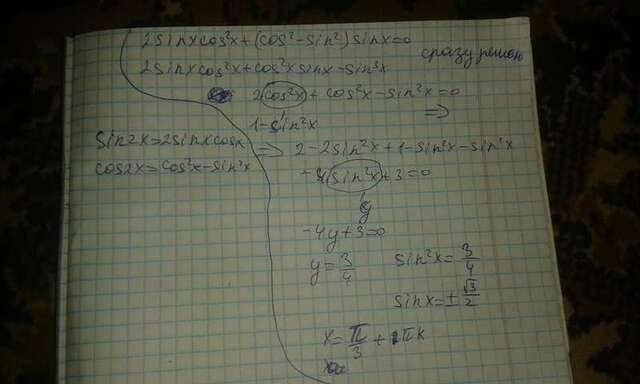 2sinxcos²x+(cos²-sin²)sinx=0
сразу решаю
2sinxcos²x+cos²xsinx-sin³x
2cos²x+cos²x-sin²x=0 =>
1-sin²x
sin2x=2sinxcosx
cos2x=cos²x-sin²x
=> 2-2sin²x+1-sin²x-sin²x
-4sin²x+3=0
y
-4y+3=0
y=3/4
sin²x=3/4
sinx=±√3/2
x=π/3+πk